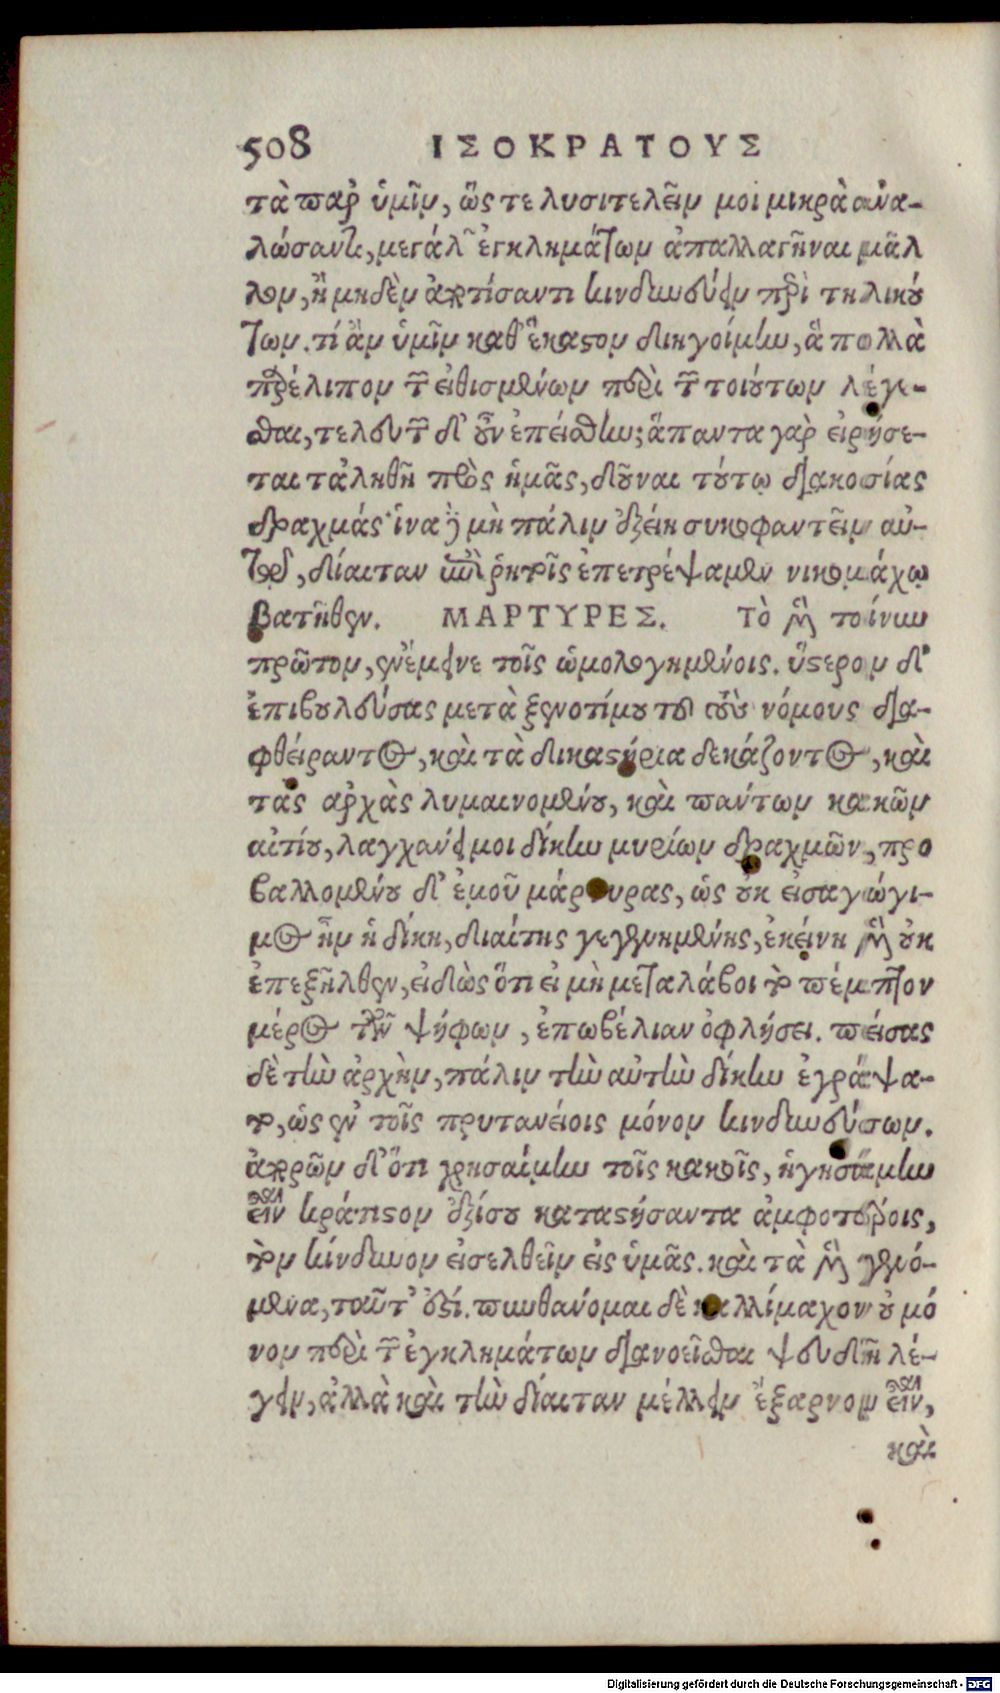 508 ΙΣΟΚΡΑΤΟΥΣ
τὰ παρ' ὑμῖν, ὥς τε λυσιτελεῖν μοι μικρὰ ἀνα-
λώσαντι, μεγάλων ἐγκλημάτων ἀπαλλαγῆναι μᾶλ
λον, ἢ μηδὲν ἀποτίσαντι κινδυνεύειν περὶ τηλικού
των. τί ἂν ὑμῖν καθ' ἕκαστον διηγοίμην, ἃ πολλὰ
παρέλιπον τῶν εἰθισμένων περὶ τῶν τοιούτων λέγε-
σθαι, τελευτῶν δ' οὖν ἐπείσθην; ἅπαντα γὰρ εἰρήσε-
ται τἀληθῆ πρὸς ἡμᾶς, δοῦναι τούτῳ διακοσίας
δραχμάς· ἵνα δὲ μὴ πάλιν ἐξείη συκοφαντεῖν αὐ-
τῷ, δίαιταν ἐπὶ ῥητοῖς ἐπετρέψαμεν νικομάχῳ
βατῆθεν. ΜΑΡΤΥΡΕΣ. Τὸ μὲν τοίνυν
πρῶτον, ἐνέμεινε τοῖς ὡμολογημένοις. ὕστερον δ'
ἐπιβουλεύσας μετὰ ξενοτίμου τοῦ τοὺς νόμους δια-
φθείραντος, καὶ τὰ δικαστήρια δεκάζοντος, καὶ
τὰς ἀρχὰς λυμαινομένου, καὶ πάντων κακῶν
αἰτίου, λαγχάνει μοι δίκην μυρίων δραχμῶν, προ
βαλλομένου δ' ἐμοῦ μάρτυρας, ὡς οὐκ εἰσαγώγι-
μος ἦν ἡ δίκη, διαίτης γεγενημένης, ἐκείνη μὲν οὐκ
ἐπεξῆλθεν, εἰδὼς ὅτι εἰ μὴ μεταλάβοι τὸ πέμπτον
μέρος τῶν ψήφων, ἐπωβέλιαν ὀφλήσει. πείσας
δὲ τὴν ἀρχὴν, πάλιν τὴν αὐτὴν δίκην ἐγράψα-
το, ὡς ἐν τοῖς πρυτανείοις μόνον κινδυνεύσων.
ἀπορῶν δ' ὅτι χρησαίμην τοῖς κακοῖς, ἡγησάμην
εἶναι κράτιστον ἐξίσου καταστήσαντα ἀμφοτέροις,
τὸν κίνδυνον εἰσελθεῖν εἰς ὑμᾶς. καὶ τὰ μὲν γενό-
μενα, ταῦτ' ἐστί. πυνθάνομαι δὲ καλλίμαχον οὐ μό
νον περὶ τῶν ἐγκλημάτων διανοεῖσθαι ψευδῆ λέ-
γειν, ἀλλὰ καὶ τὴν δίαιταν μέλλειν ἔξαρνον εἶναι,
καὶ
Digitalisierung gefördert durch die Deutsche Forschungsgemeinschaft - DFG